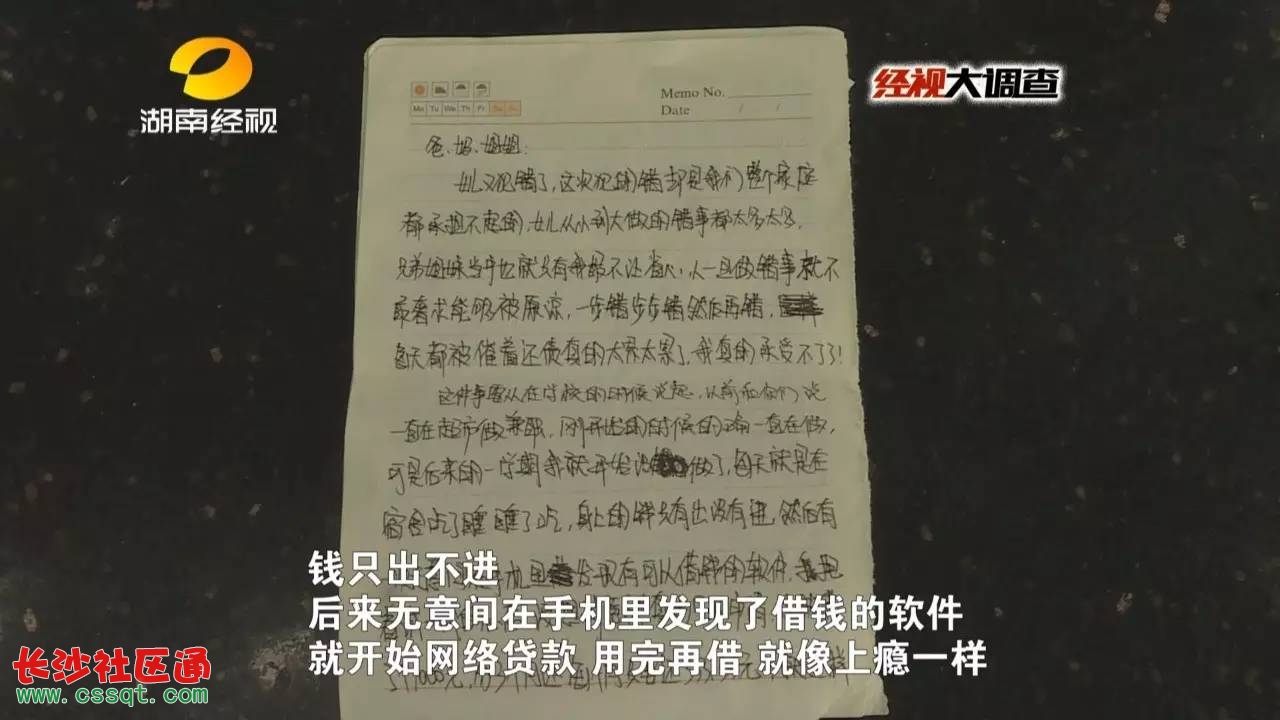 湖南经视
经视大调查
Memo No.
Date / /
Mo Tu We Th Fr Sa Su
爸、妈、姐姐:
女儿又犯错了,这次犯的错却是我们整个家庭
都承担不起的,女儿从小到大做的错事都太多太多,
兄弟姐妹当中也就只有我最不让省心,人一旦做错事就不
最奢求能够被原谅,一步错步步错然后再错,
每天都被催着还债真的太累太累了,我真的承受不了了!
这件事要从在学校的时候说起,以前和你们说
一直在超市做兼职,刚开始的时候的确一直在做,
可是后来的一学期我就开始没做了,每天就是在
宿舍吃了睡睡了吃,身上的钱只有出没有进,然后有
机里发现有可以借钱的软件,我把
钱只出不进
后来无意间在手机里发现了借钱的软件
就开始网络贷款 用完再借 就像上瘾一样
长沙社区通
www.cssqt.com